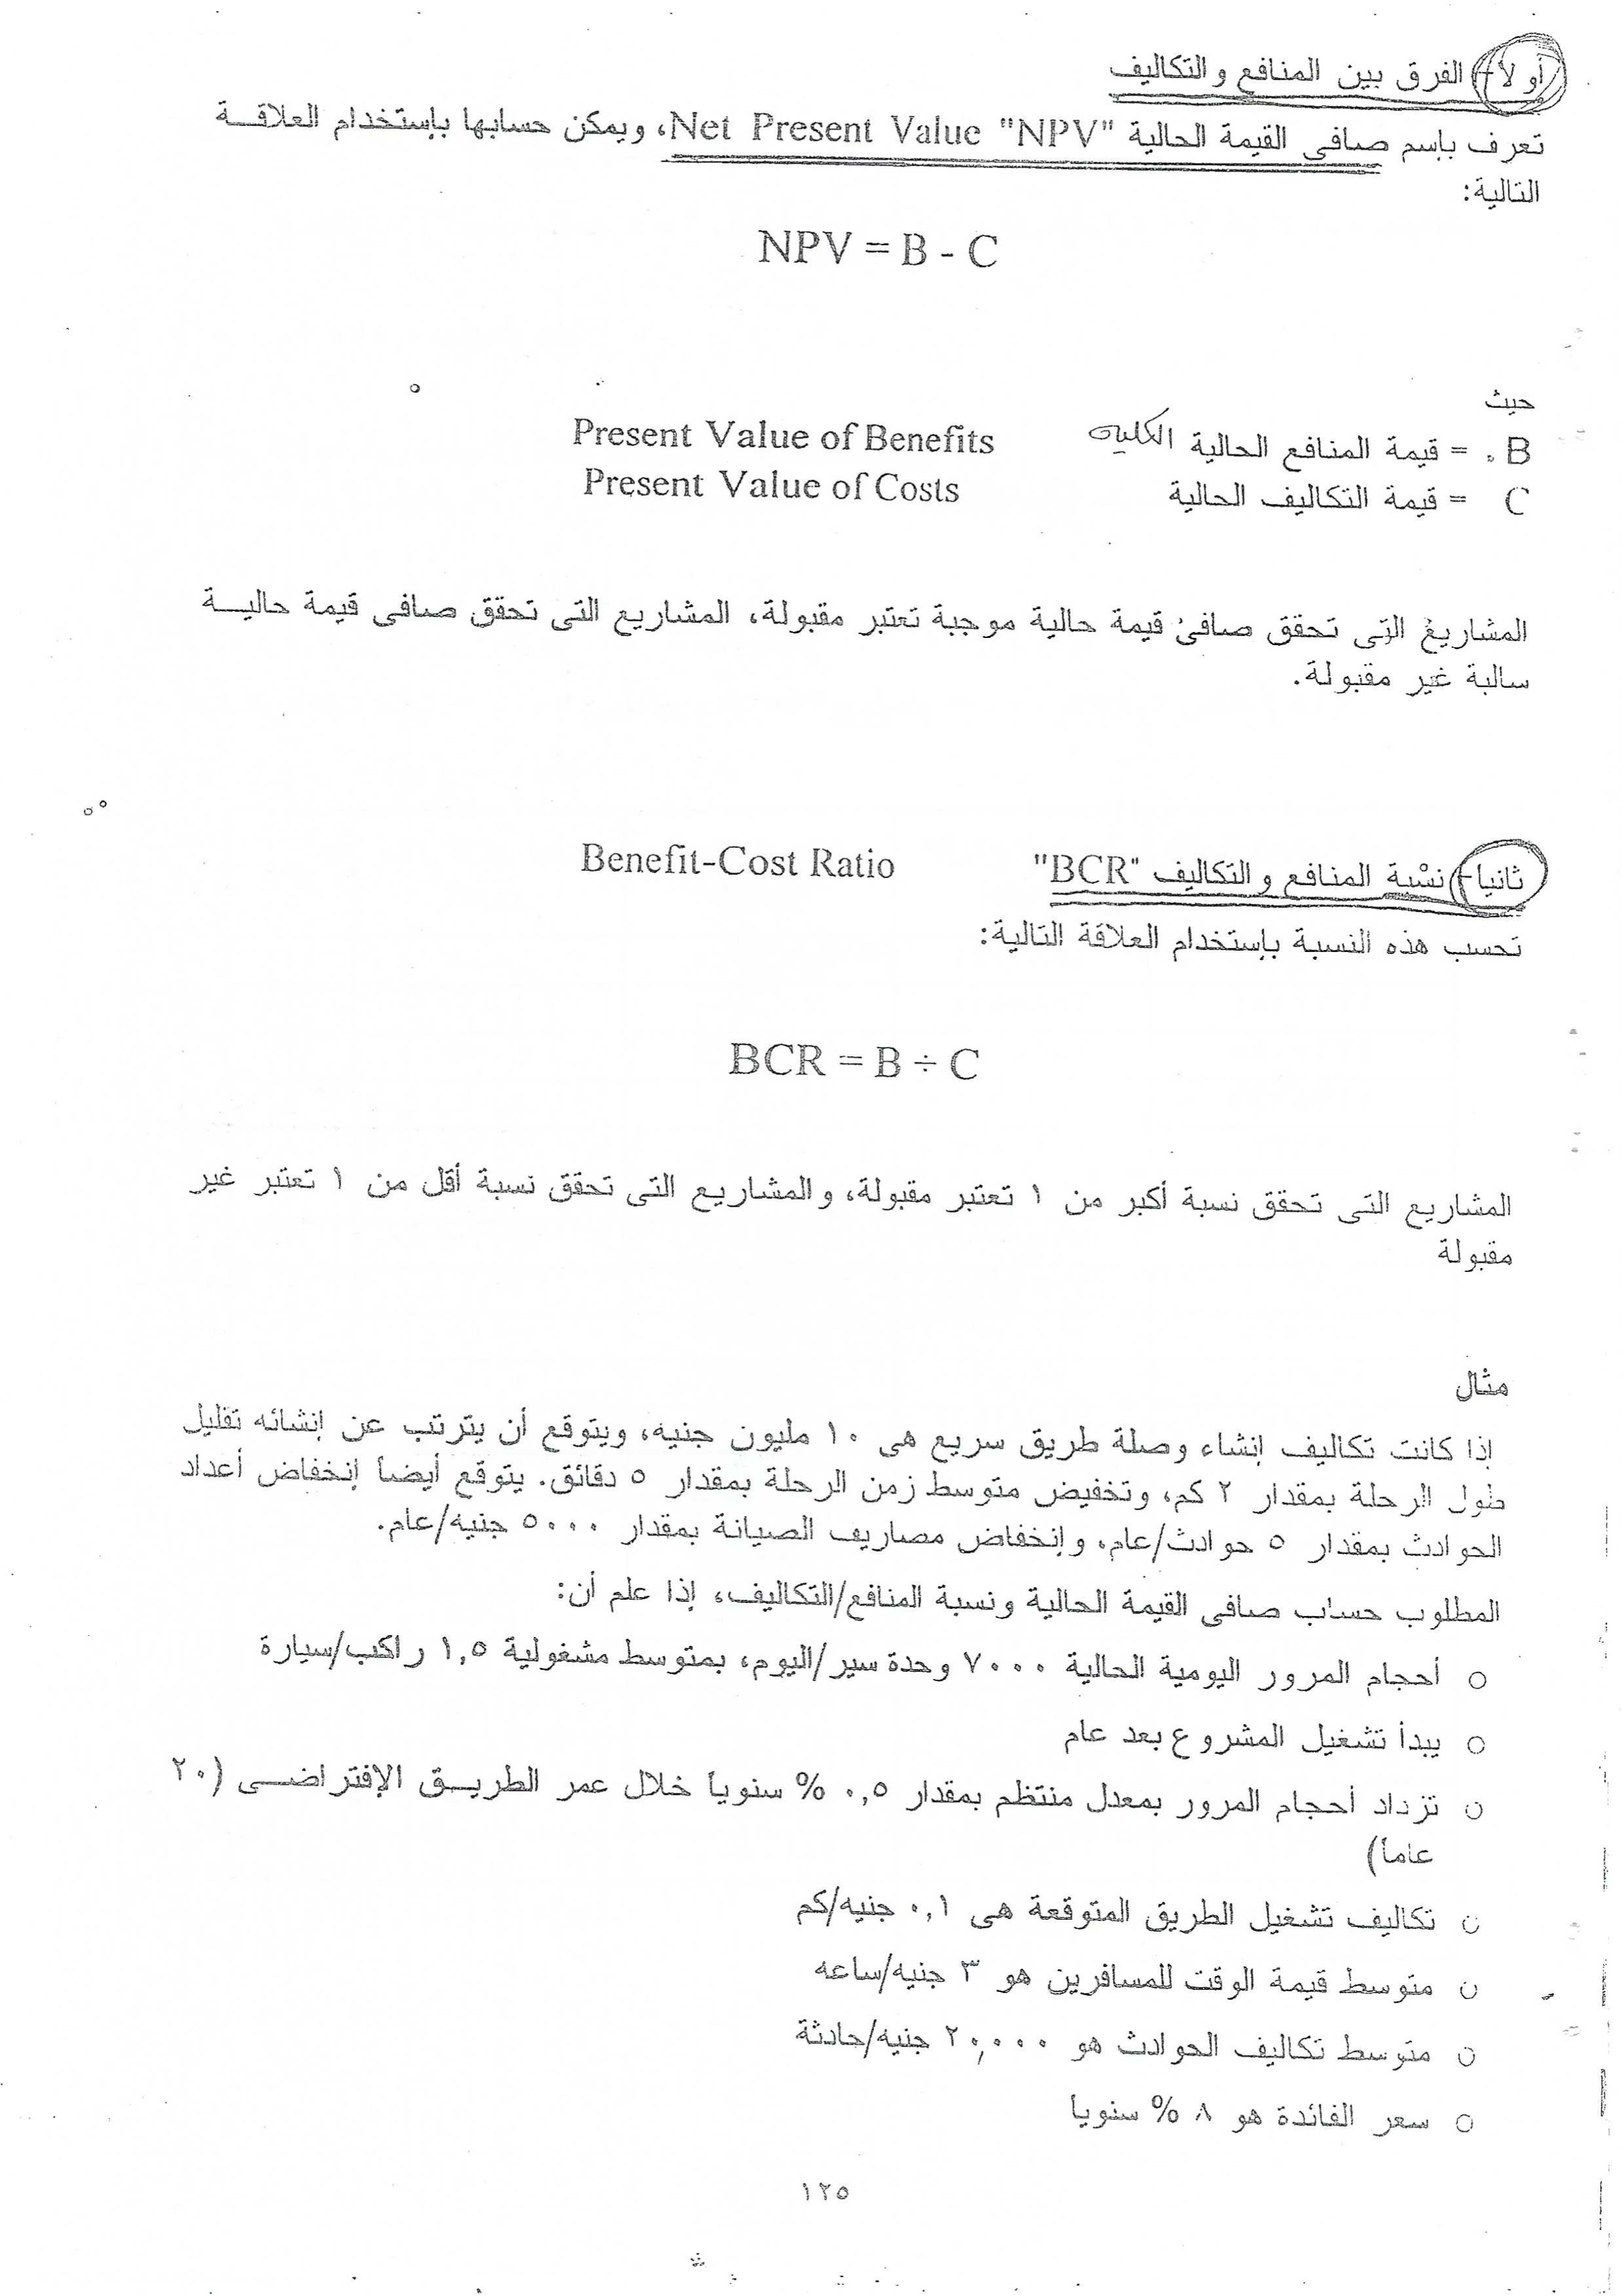 أولا- الفرق بين المنافع والتكاليف
تعرف بإسم صافى القيمة الحالية "Net Present Value "NPV، ويمكن حسابها بإستخدام العلاقة
التالية:
NPV = B - C
حيث
B = قيمة المنافع الحالية الكلية Present Value of Benefits
C = قيمة التكاليف الحالية Present Value of Costs
المشاريع التى تحقق صافى قيمة حالية موجبة تعتبر مقبولة، المشاريع التى تحقق صافى قيمة حالية
سالبة غير مقبولة.
ثانيا- نسبة المنافع والتكاليف "BCR" Benefit-Cost Ratio
تحسب هذه النسبة بإستخدام العلاقة التالية:
BCR = B ÷ C
المشاريع التى تحقق نسبة أكبر من ١ تعتبر مقبولة، والمشاريع التى تحقق نسبة أقل من ١ تعتبر غير
مقبولة
مثال
إذا كانت تكاليف إنشاء وصلة طريق سريع هى ١٠ مليون جنيه، ويتوقع أن يترتب عن إنشائه تقليل
طول الرحلة بمقدار ٢ كم، وتخفيض متوسط زمن الرحلة بمقدار ٥ دقائق. يتوقع أيضاً إنخفاض أعداد
الحوادث بمقدار ٥ حوادث/عام، وإنخفاض مصاريف الصيانة بمقدار ٥٠٠٠ جنيه/عام.
المطلوب حساب صافى القيمة الحالية ونسبة المنافع/التكاليف، إذا علم أن:
○ أحجام المرور اليومية الحالية ٧٠٠٠ وحدة سير/اليوم، بمتوسط مشغولية ١,٥ راكب/سيارة
○ يبدأ تشغيل المشروع بعد عام
○ تزداد أحجام المرور بمعدل منتظم بمقدار ٠,٥ % سنوياً خلال عمر الطريق الإفتراضى (٢٠
عاماً)
○ تكاليف تشغيل الطريق المتوقعة هى ٠,١ جنيه/كم
○ متوسط قيمة الوقت للمسافرين هو ٣ جنيه/ساعه
○ متوسط تكاليف الحوادث هو ٢٠,٠٠٠ جنيه/حادثة
○ سعر الفائدة هو ٨ % سنويا
١٢٥